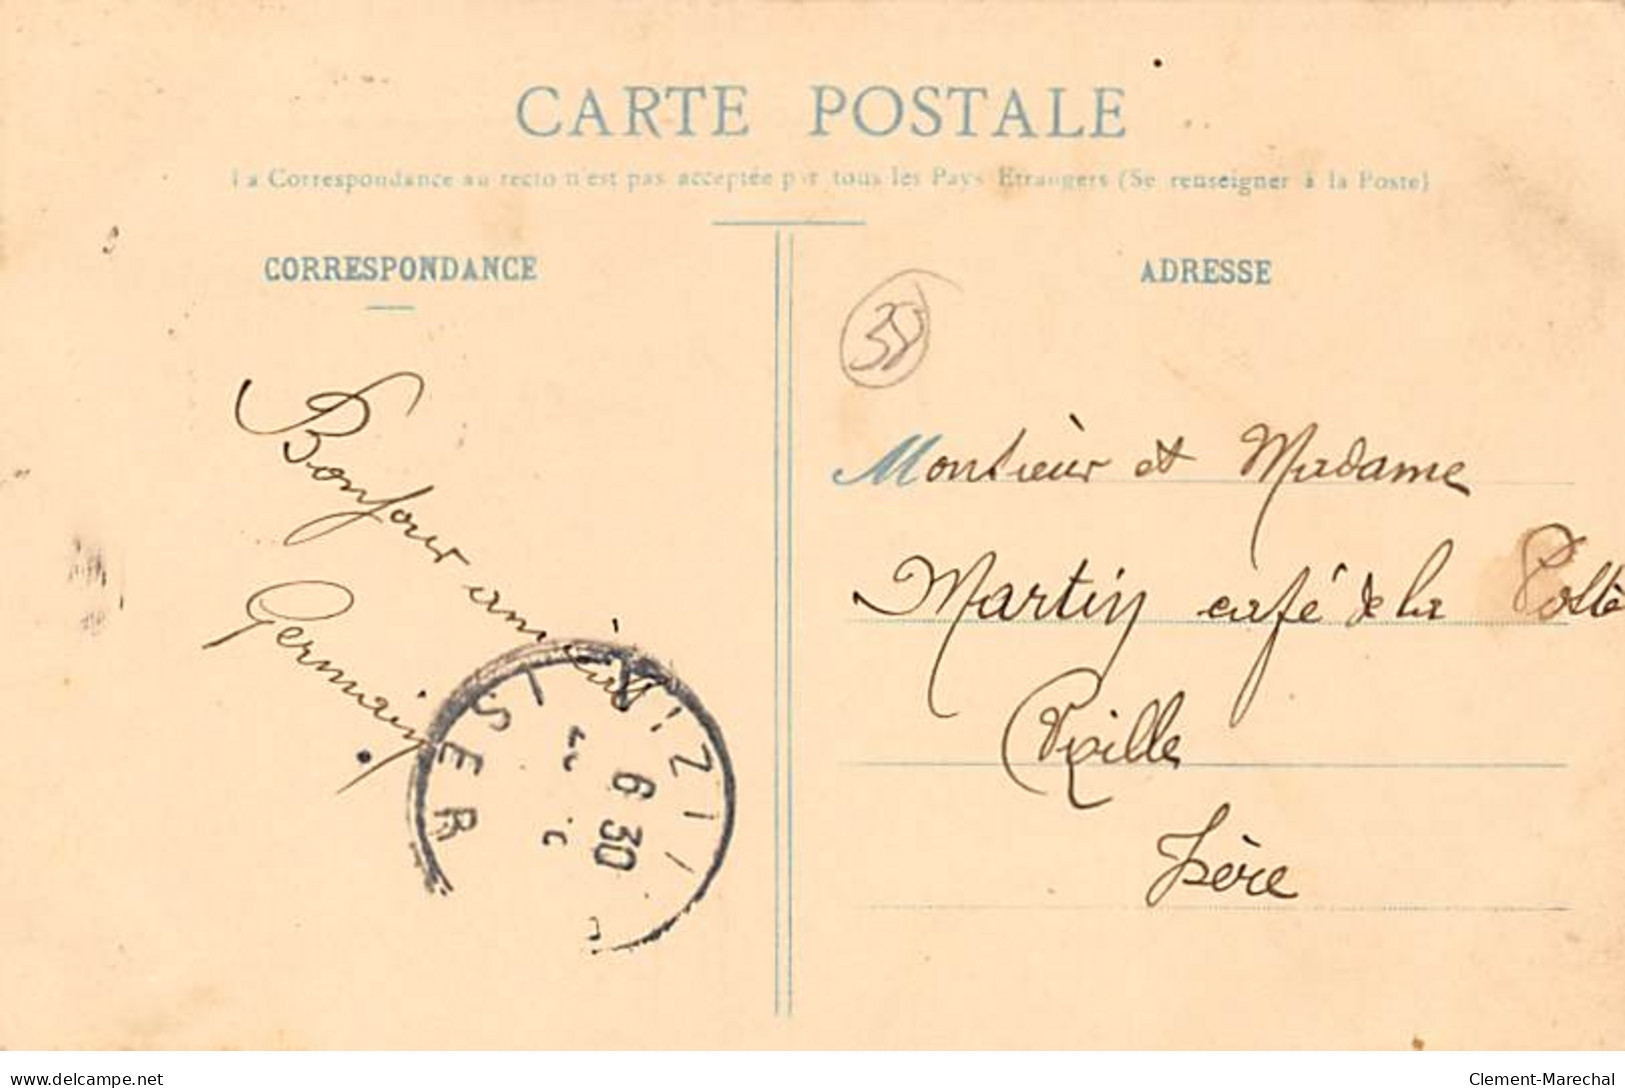 CARTE POSTALE
La Correspondance au recto n'est pas acceptée par tous les Pays Etrangers (Se renseigner à la Poste)
CORRESPONDANCE
ADRESSE
38
Bonjour amical
Germain
Monsieur et Madame
Martin café de la Poste
Vizille
Isère
VIZILLE
ISERE
6 30
delcampe.net
Clement-Marechal